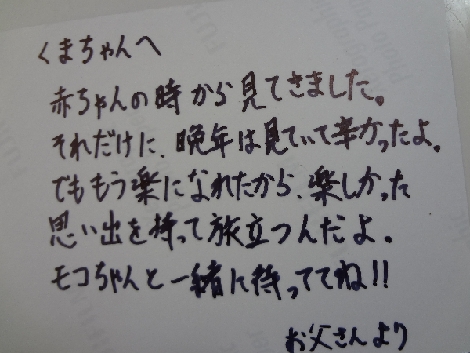 くまちゃんへ
赤ちゃんの時から見てきました。
それだけに、晩年は見ていて辛かったよ。
でももう楽になれたから、楽しかった
思い出を持って旅立つんだよ。
モコちゃんと一緒に待っててね!!
お父さんより